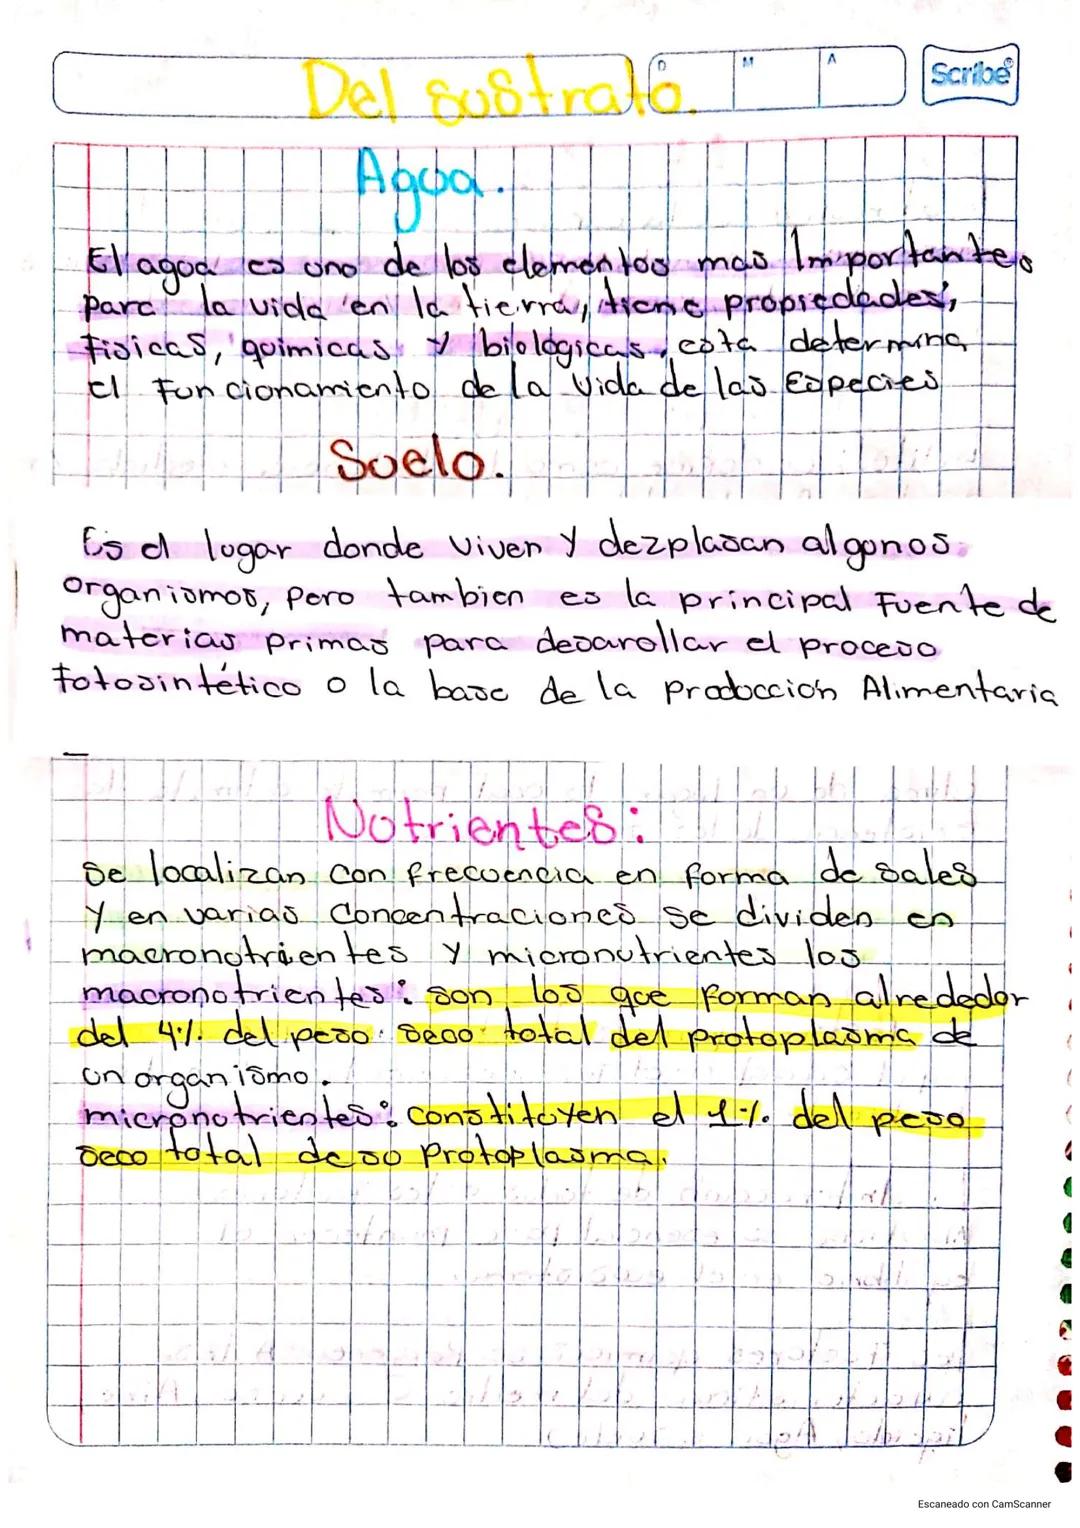 Del sustrato.
D M A
Scribe®
Agua.
El agua es uno de los elementos mas Importantes
para la vida en la tierra, tiene propiedades,
Fisicas, quimicas y biológicas, esta determina
el Funcionamiento de la Vida de las Especies
Suelo.
Es el lugar donde viven y dezplasan algunos
organismos, pero tambien es la principal Fuente de
materias primas para desarollar el proceso
Fotosintético o la base de la Producción Alimentaria
Nutrientes:
Se localizan con frecuencia en forma de sales
y en varias Concentraciones se dividen en
macronutrientes y micronutrientes los
macronutrientes: son los que forman alrededor
del 4% del peso seco total del protoplasma de
un organismo.
micronutrientes: constituyen el 1% del peso
seco total de so Protoplasma.
Escaneado con CamScanner